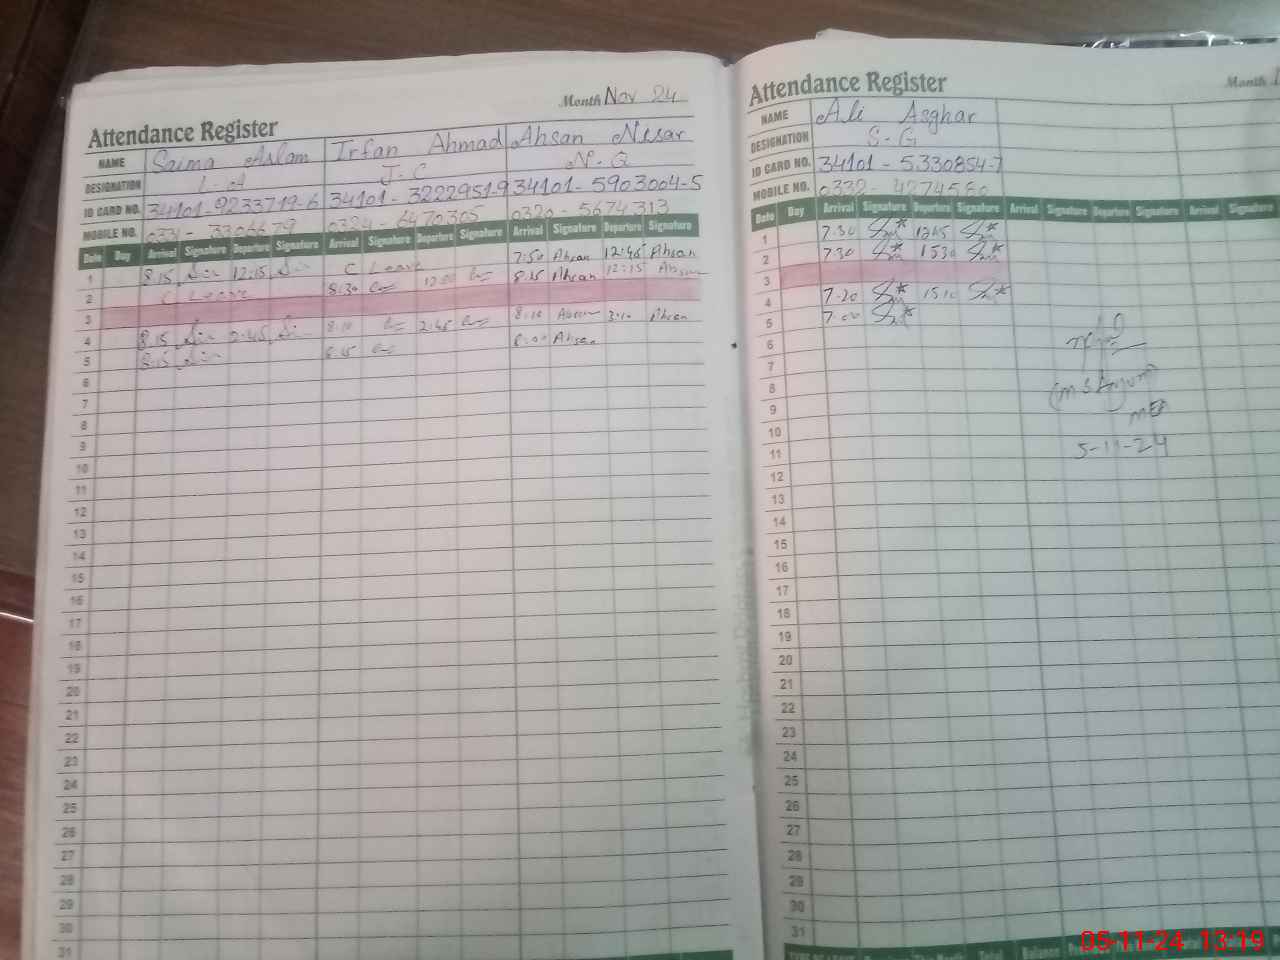 Month Nov 24
Attendance Register
NAME Saima Aslam Irfan Ahmad Ahsan Nisar
DESIGNATION L-A J-C N-Q
ID CARD NO. 34101-9233719-6 34101-3222951-9 34101-5903004-5
MOBILE NO. 0324-6470305 0320-5674313
Date Day Arrival Signature Departure Signature Arrival Signature Departure Signature Arrival Signature Departure Signature
1 8:15 12:15 C Leave 7:50 Ahsan 12:45 Ahsan
2 C Leave 8:30 8:15 Ahsan 12:15 Ahsan
3
4 8:15 2:45 8:10 2:45 8:10 Ahsan 3:10 Ahsan
5 8:15 8:15 Ahsan
6
7
8
9
10
11
12
13
14
15
16
17
18
19
20
21
22
23
24
25
26
27
28
29
30
31
Attendance Register
Month
NAME Ali Asghar
DESIGNATION S-G
ID CARD NO. 34101-5330854-7
MOBILE NO. 0332-4274580
Date Day Arrival Signature Departure Signature Arrival Signature Departure Signature Arrival Signature
1 7:30 1215
2 7:30 1530
3
4 7:20 1510
5 7:00
6
7
8
9
10
11
12
13
14
15
16
17
18
19
20
21
22
23
24
25
26
27
28
29
30
31
(M S Anjum)
MEA
5-11-24
Total Balance
05-11-24 13:19